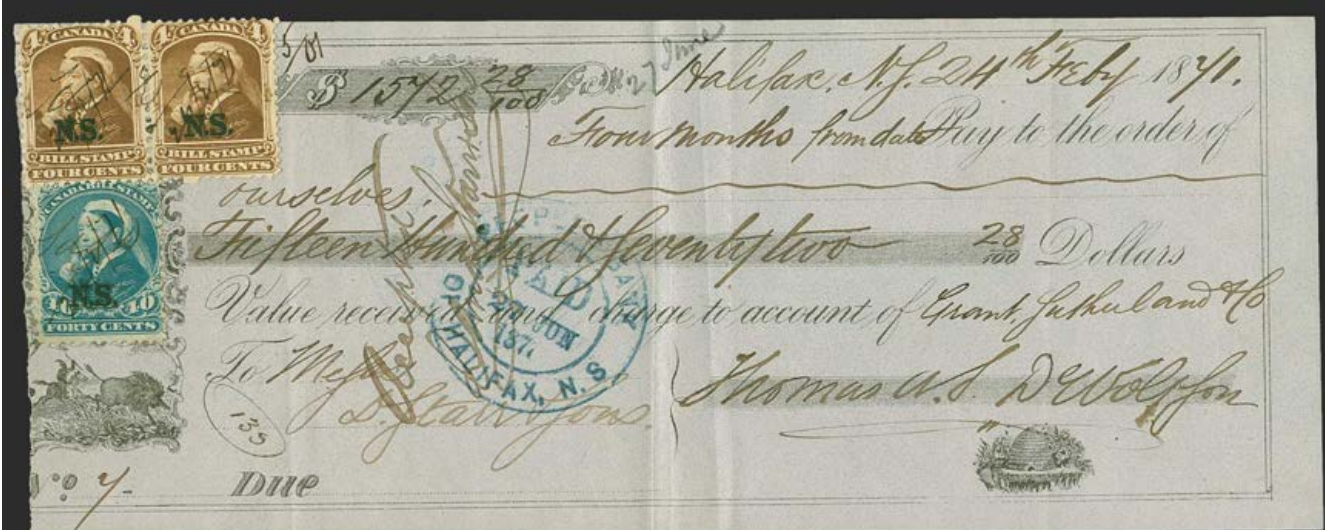 4 CANADA 4
N.S.
BILL STAMP
FOUR CENTS
4 CANADA 4
N.S.
BILL STAMP
FOUR CENTS
CANADA BILL STAMP
N.S.
40 40
FORTY CENTS
$ 1572 28/100 27 June Halifax, N.S. 24th Feby 1871.
Four months from date Pay to the order of
ourselves.
Fifteen Hundred & Seventy two 28/100 Dollars
Value received and charge to account of Grant, Sutherland & Co
To Messrs
D. Starr & Sons.
Thomas A. S. DeWolf & Son
Accepted
PAID
27 JUN
187
OF HALIFAX, N.S.
139
No 7
Due